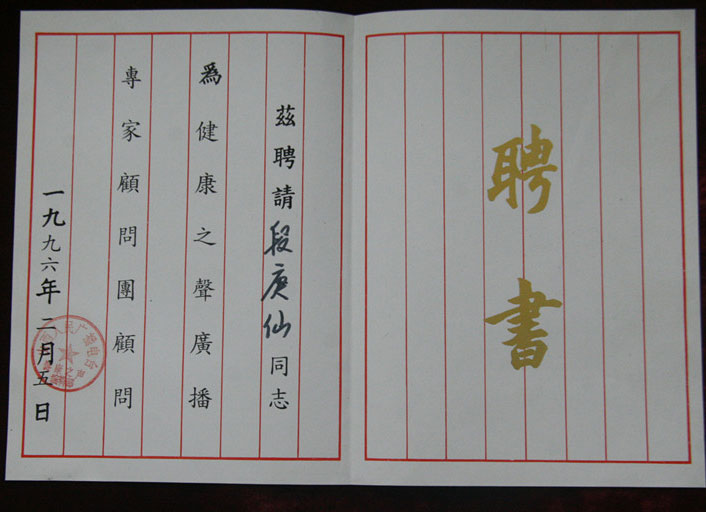 聘書
茲聘請段庚仙同志
爲健康之聲廣播
專家顧問團顧問
一九九六年二月五日